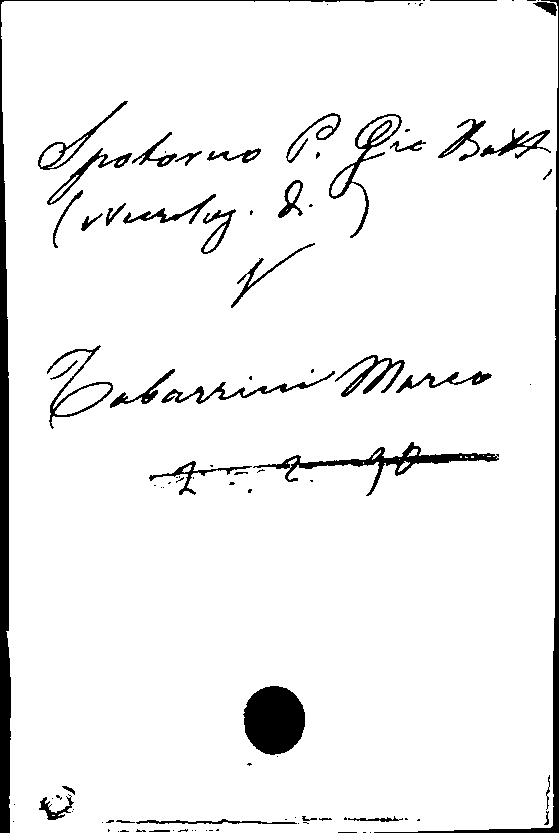 Spotorno P. Gio Batt,
(Necrolog. d. )
V
Tabarrini Marco
2 . 2. 90